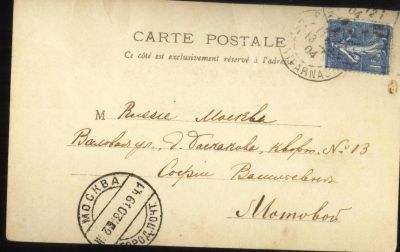 CARTE POSTALE
Ce côté est exclusivement réservé à l'adresse
M Russie Москва
Валовая ул., д. Баскакова, кварт. № 13
Софіи Васильевнѣ
Мотовой
МОСКВА
ГОРОД. ПОЧТ.